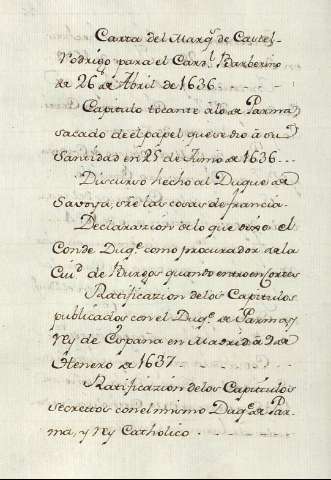 Carta del Marq.ˢ de Castel-
Rodrigo para el Card.ˡ Barberino
de 26 de Abril de 1636.
Capitulo tocante a lo de Parma
sacado de el papel que se dio à su
Santidad en 25 de Junio de 1636...
Discurso hecho al Duque de
Savoya, sre las cosas de francia.
Declarazion de lo que el
Conde Duq.ᵉ como procurador de la
Ciu.ᵈ de Burgos quando entro en Cortes
Ratificazion de los Capitulos
publicados con el Duq.ᵉ de Parma, y
rey de España en Madrid à de
Henero de 1637.
Ratificazion de los Capitulos
secrettos con el mismo Duq.ᵉ de Par-
ma, y rey Catholico.